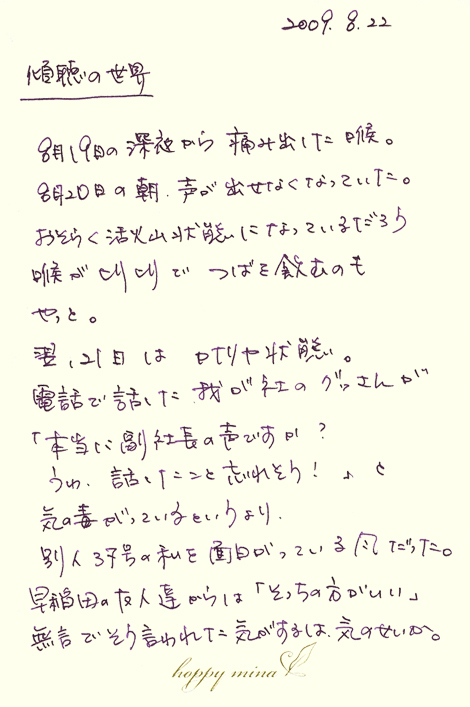 2009. 8. 22
傾聴の世界
8月19日の深夜から痛み出した喉。
8月20日の朝、声が出せなくなっていた。
おそらく活火山状態になっているだろう
喉がヒリヒリで つばを飲むのも
やっと。
翌、21日は ロパク状態。
電話で話した 我が社のグッさんが
「本当に副社長の声ですか?
うわ、話したこと忘れそう!」と
気の毒がっているというより、
別人37号の私を面白がっている風だった。
早稲田の友人達からは「そっちの方がいい」
無言でそう言われた気がするは、気のせいか。
happy mina